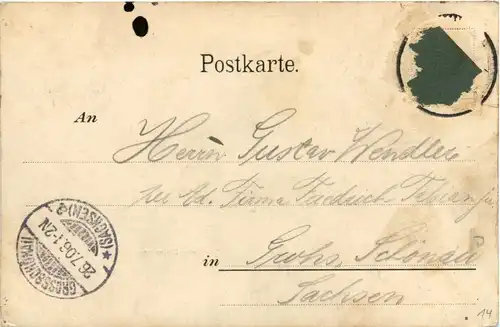 Postkarte.
An
Herrn Gustav Wendler
Firma Friedrich
in Schönau
Sachsen
GROSSSCHÖNAU
(SACHSEN)
26.7.06.1-2N
14